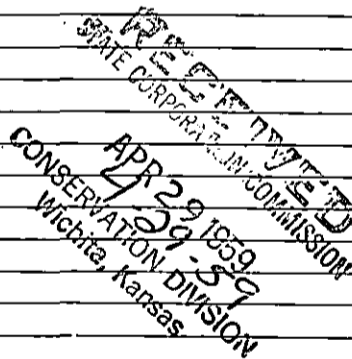 RECEIVED
STATE CORPORATION COMMISSION
APR 29 1959
4-29-59
CONSERVATION DIVISION
Wichita, Kansas